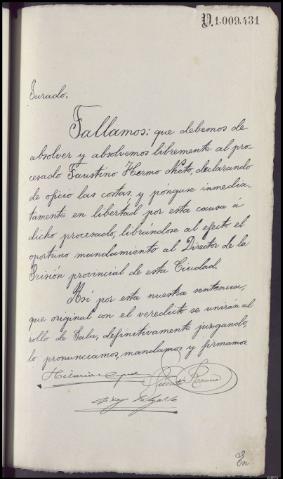 N.1.009.431
Jurado.
Fallamos: que debemos de
absolver y absolvemos libremente al pro-
cesado Faustino Hermo Nieto, declarando
de oficio las costas, y póngase inmedia-
tamente en libertad por esta causa á
dicho procesado, librándose al efecto el
oportuno mandamiento al Director de la
Prisión provincial de esta Ciudad.
Así por esta nuestra sentencia,
que original con el veredicto se unirá al
rollo de Sala, definitivamente juzgando,
lo pronunciamos, mandamos y firmamos